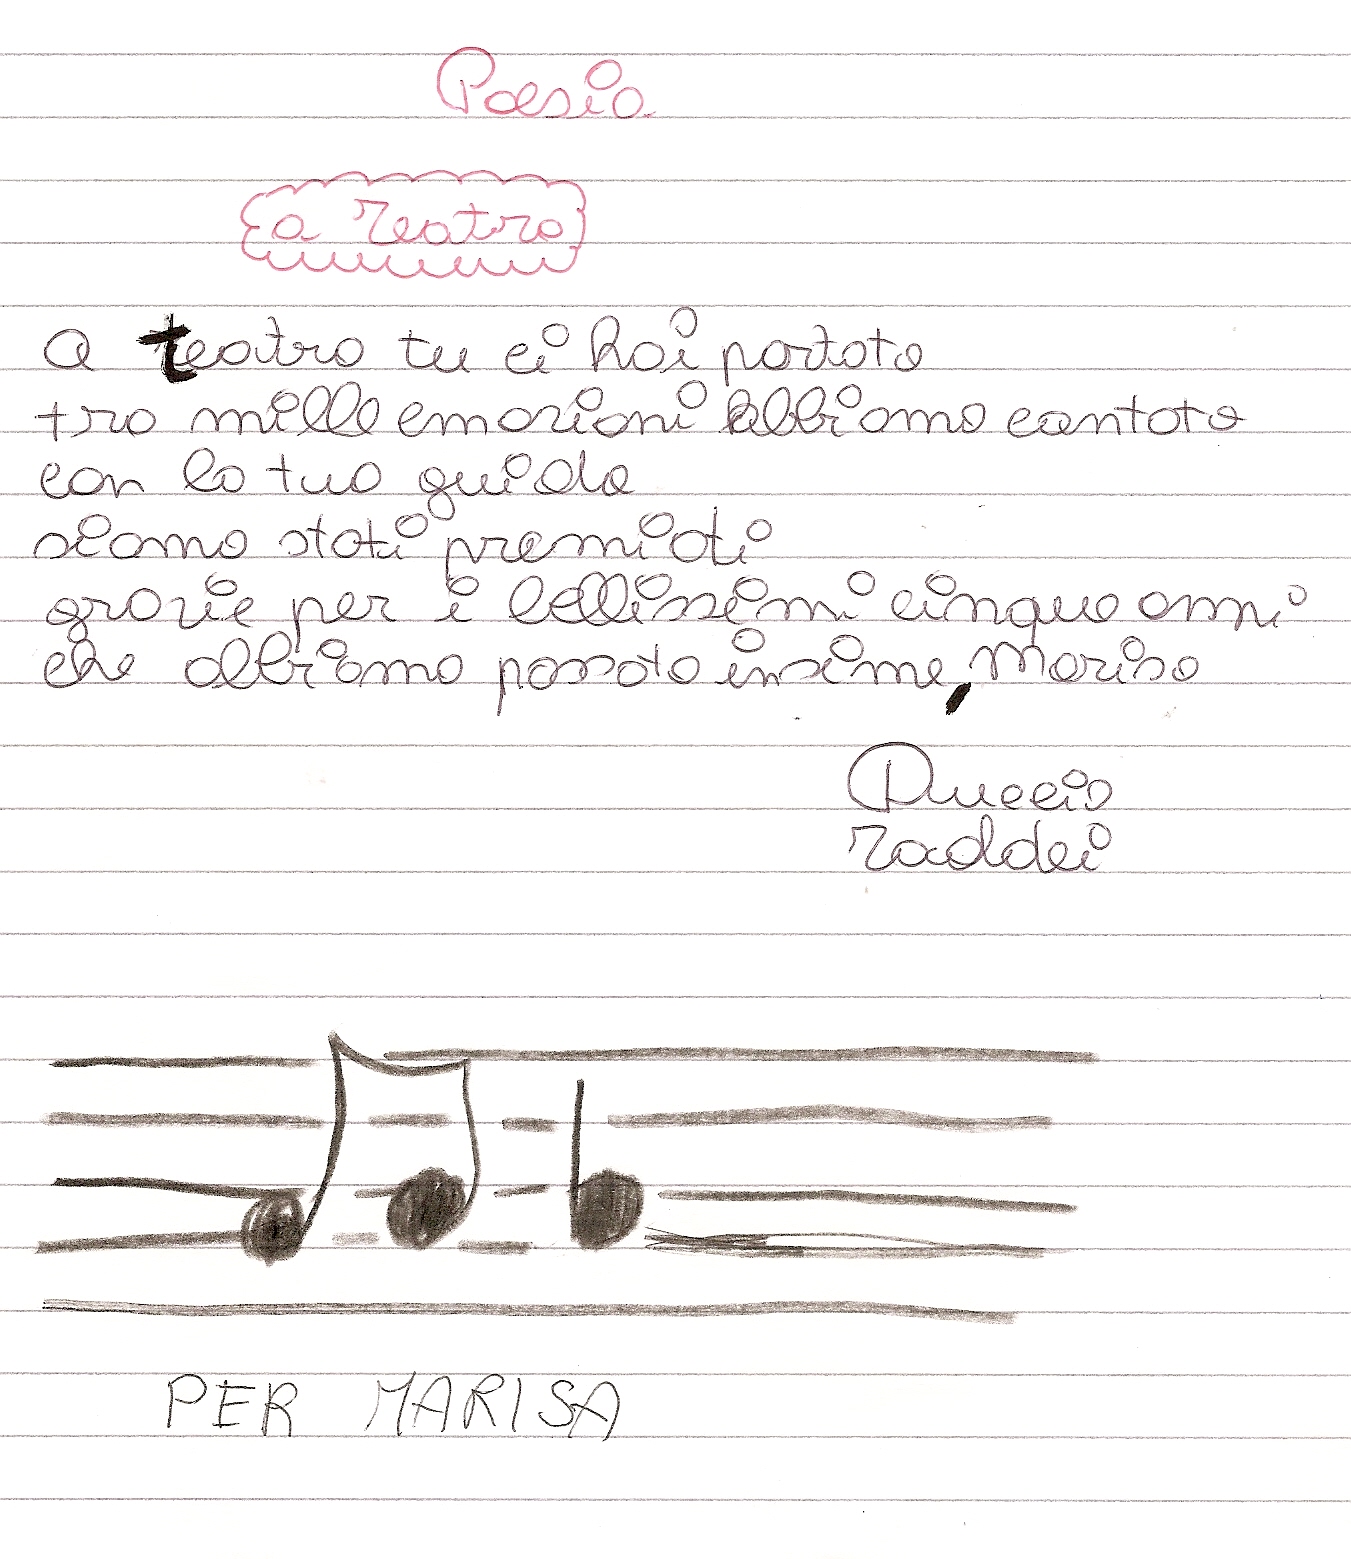 Poesia
a Teatro
a teatro tu ci hai portato
tra mille emozioni abbiamo cantato
con la tua guida
siamo stati premiati
grazie per i bellissimi cinque anni
che abbiamo passato insime, Marisa
Duccio
Taddei
PER MARISA